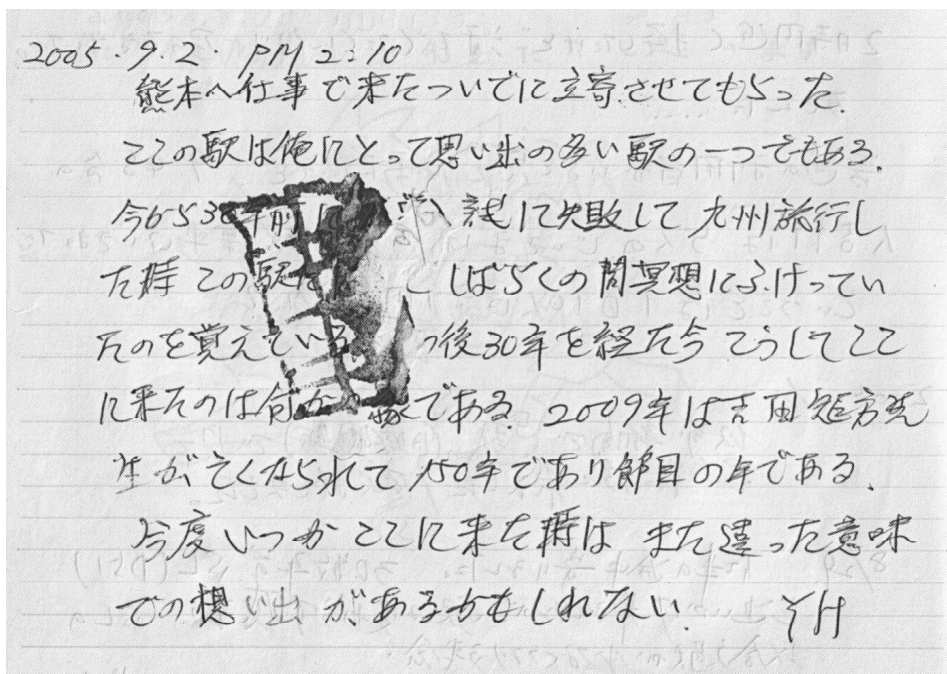 2005.9.2. PM 2:10
熊本へ仕事で来たついでに立寄させてもらった.
ここの駅は俺にとって思い出の多い駅の一つでもある.
今から30年前に 試に失敗して九州旅行し
た時この駅に しばらくの間冥想にふけってい
たのを覚えている 後30年を経た今こうしてここ
に来たのは何か である. 2009年は吉田矩方先
生が亡くなられて150年であり節目の年である.
今度いつかここに来た時はまた違った意味
での想い出があるかもしれない. YH